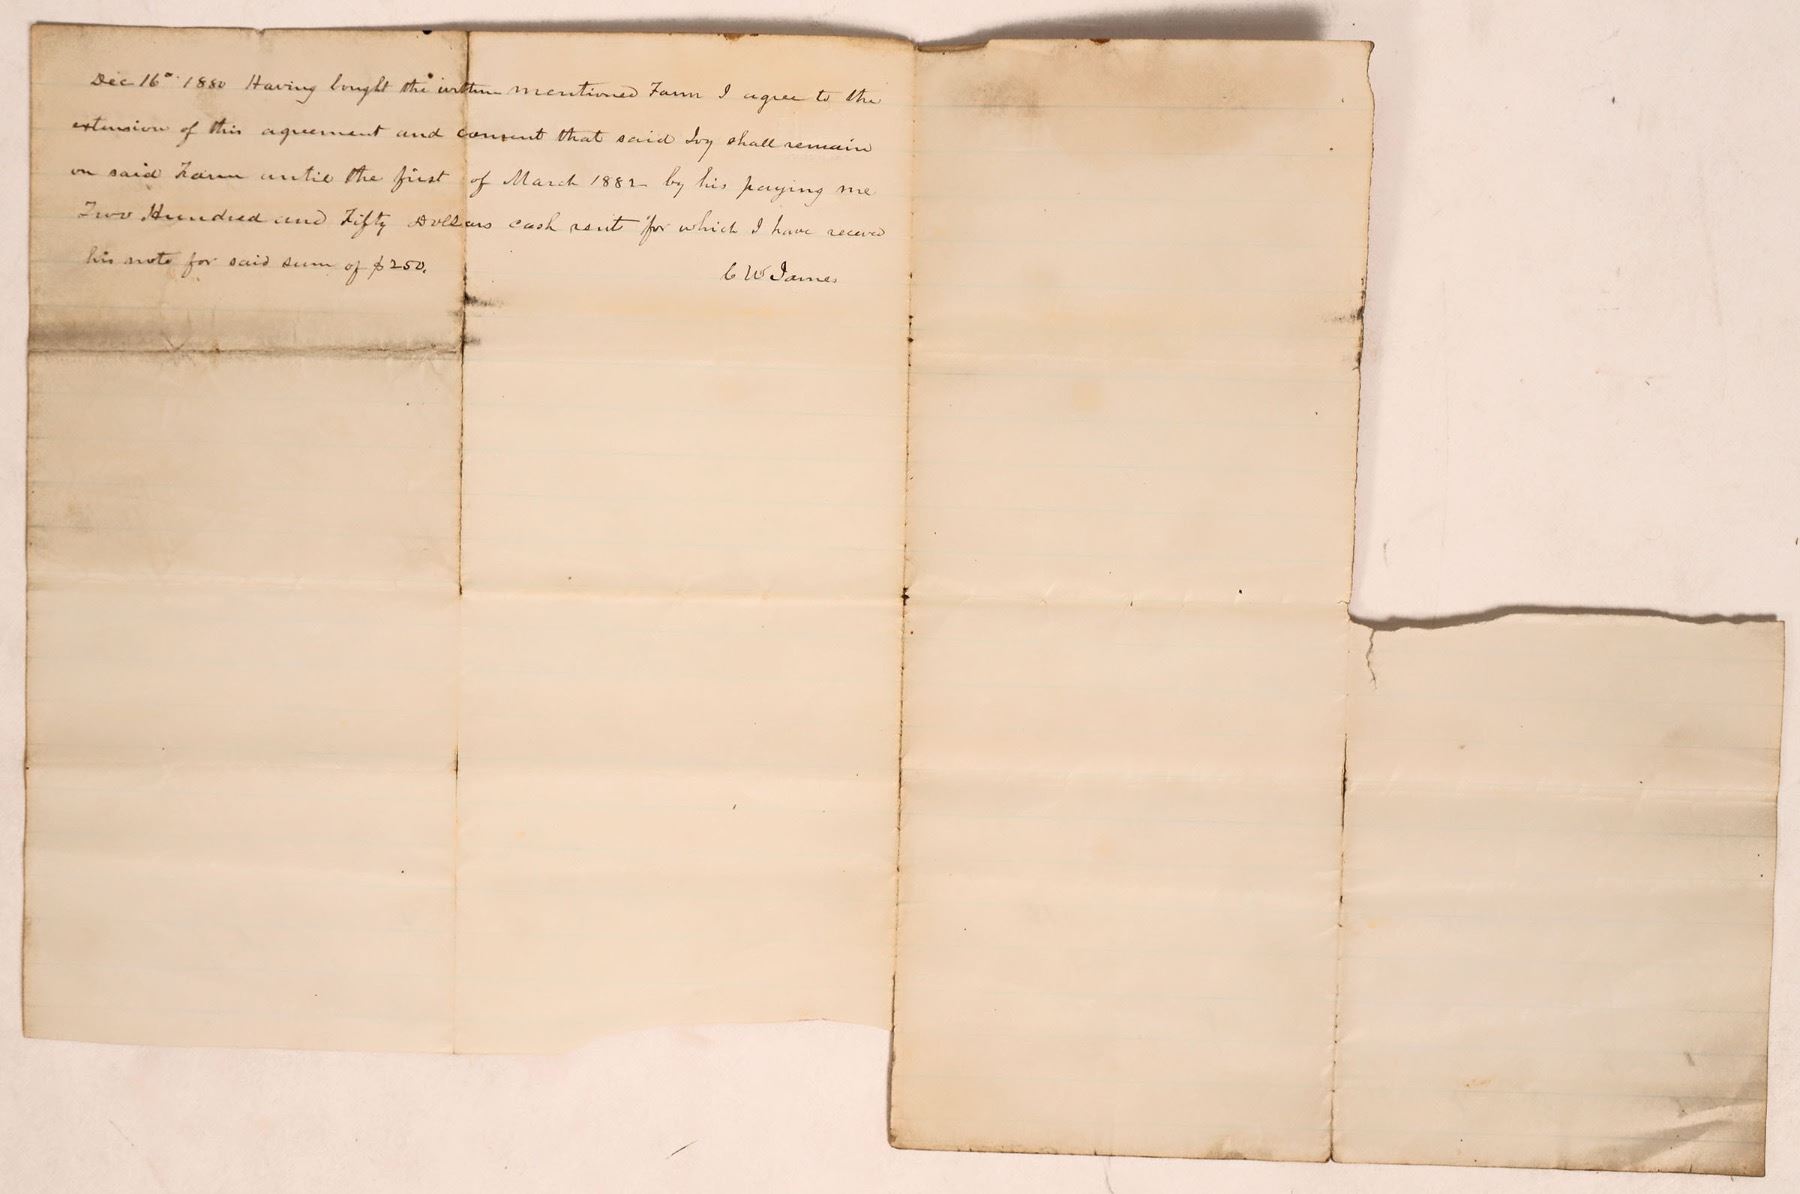 Dec 16th 1880 Having bought the within mentioned Farm I agree to the
extension of this agreement and consent that said Ivy shall remain
on said Farm until the first of March 1882 by his paying me
Two Hundred and Fifty Dollars cash rent for which I have received
his note for said sum of $250.
C W James